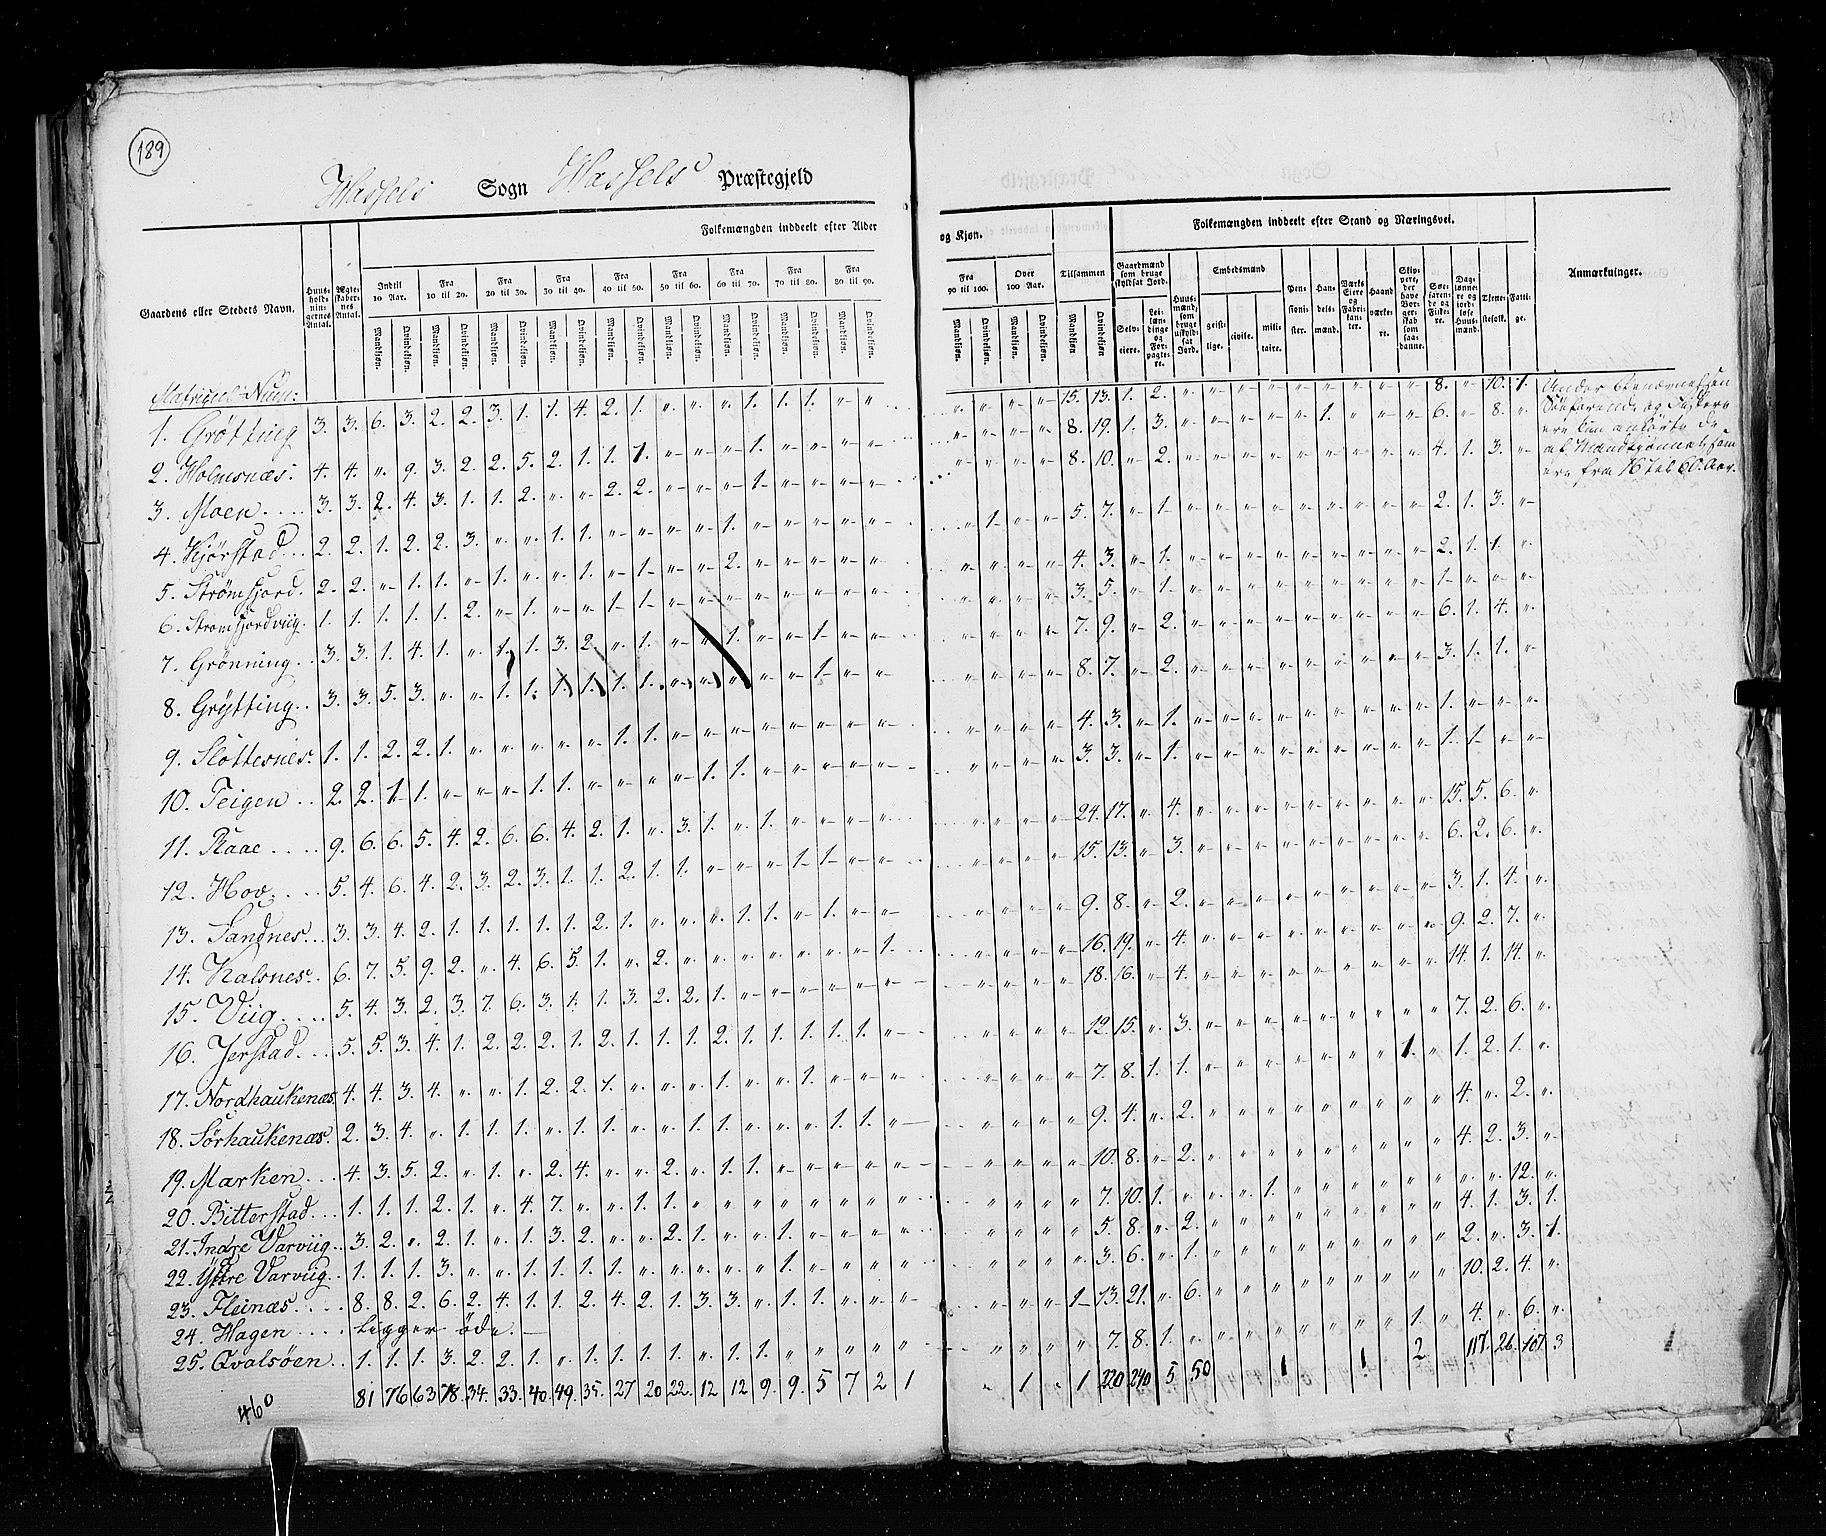 189
Hassels Sogn Hassels Præstegjeld
Folkemængden inddeelt efter Alder og Kjøn. Folkemængden inddeelt efter Stand og Næringsvei.
Gaardens eller Stedets Navn. Huusholdningernes Antal. Ægteskabernes Antal. Indtil 10 Aar. Fra 10 til 20. Fra 20 til 30. Fra 30 til 40. Fra 40 til 50. Fra 50 til 60. Fra 60 til 70. Fra 70 til 80. Fra 80 til 90. Fra 90 til 100. Over 100 Aar. Tilsammen Gaardmænd som bruge skyldsat Jord. Selveiere. Leilændinge og Forpagtere. Huusmænd, som bruge uskyldsat Jord. Embedsmænd geistlige. civile. militaire. Pensionister. Handelsmænd. Værks Eiere og Fabrikanter. Haandværkere. Skippere, der have Borgerskab som saadanne. Søefarende og Fiskere. Daglønnere og jordløse Huusmænd. Tjenestefolk. Fattige. Anmærkninger.
Mandkjøn. Qvindekjøn.
Matricul-Num:
1. Grøtting 3. 3. 6. 3. 2. 2. 3. 1. 1. 4. 2. 1. " " " 1. 1. 1. " " " " " " 15. 13. 1. 2. " " " " " " " " " 8. " 10. 1.
2. Holmsnæs. 4. 4. " 9. 3. 2. 2. 5. 2. 1. 1. 1. " " " 1. " " " " " " " " 8. 19. 1. 3. " " " " " 1. " " " 6. " 8. "
3. Moen 3. 3. 2. 4. 3. 1. 1. 2. " " 2. 2. " " " 1. " " " " " " " " 8. 10. " 2. " " " " " " " " " 4. 1. 3. "
4. Kjørstad 2. 2. 1. 2. 2. 3. " " 1. 1. " " " " 1. " " " " " " 1. " " 5. 7. " 1. " " " " " " " " " 2. 1. 3. "
5. Strømfjord. 2. 2. " 1. 1. " 1. " " 1. " 1. " " 2. " " " " " " " " " 4. 3. " 1. " " " " " " " " " 2. 1. 1. "
6. Strømfjordviig. 1. 1. 1. 1. 1. 2. " 1. " " 1. 1. " " " " " " " " " " " " 3. 5. " 1. " " " " " " " " " 1. " " "
7. Grønning 3. 3. 1. 4. 1. " 1. 1. 3. 2. " 1. " " 1. " " 1. " " " " " " 7. 9. " 2. " " " " " " " " " 6. 1. 4. "
8. Grytting 3. 3. 5. 3. " " 1. 1. 1. 1. 1. 1. " " " " " 1. " " " " " " 8. 7. " 2. " " " " " " " " " 3. 1. 1. "
9. Slottesnes. 1. 1. 2. 2. 1. " " " " " 1. 1. " " " " " " " " " " " " 4. 3. " 1. " " " " " " " " " 1. " " "
10. Teigen 2. 2. 1. 1. " " " 1. 1. " " " " 1. 1. " " " " " " " " " 3. 3. " 1. " " " " " " " " " 1. 1. " "
11. Raae 9. 6. 6. 5. 4. 2. 6. 6. 4. 2. 1. " 3. 1. " 1. " " " " " " " " 24. 17. " 4. " " " " " " " " " 15. 5. 6. "
12. Hov 5. 4. 6. 4. 2. 3. 2. 3. 1. 1. 2. 1. 1. " " " 1. 1. " " " " " " 15. 13. " 3. " " " " " " " " " 6. 2. 6. "
13. Sandnes 3. 3. 4. 2. 1. 1. 1. 1. 1. 2. 1. " " " 1. 1. " 1. " " " " " " 9. 8. " 2. " " " " " " " " " 3. 1. 4. "
14. Kalsnes. 6. 7. 5. 9. 2. " 4. 6. 5. 1. " 2. " " " " " " " 1. " " " " 16. 19. " 4. " " " " " " " " " 9. 2. 7. "
15. Viig 5. 4. 3. 2. 3. 7. 6. 3. 1. 1. 3. 2. 2. 1. " " " " " " " " " " 18. 16. " 4. " " " " " " " " " 14. 1. 14. "
16. Jerstad 5. 5. 3. 4. 1. 2. 2. 2. 1. 2. 1. 1. 1. 2. 1. 1. 1. 1. 1. " " " " " 12. 15. " 3. " " " " " " " " " 7. 2. 6. "
17. Nordhaukenæs. 4. 4. 3. 4. " " 1. 2. 2. 1. " " " 1. " " 1. " " " " " " " 7. 8. 1. 1. " " " " " " " " 1. " 1. 2. 1. "
18. Sørhaukenæs. 2. 3. 4. " 1. 1. 1. " 1. 1. " " 1. 1. " " " 1. 1. " " " " " 9. 4. " 2. " " " " " " " " " 4. " 2. "
19. Marken 4. 3. 5. 2. " 1. " 2. 4. " " 2. " 1. 1. " " " " " " " " " 10. 8. " 2. " " " " " " " " " 4. 2. 3. "
20. Bitterstad 1. 1. 1. 2. 1. " 4. 7. " " 1. 1. " " " " " " " " " " " " 7. 10. 1. " " " " 1. " " " " " " " 12. "
21. Indre Varviig 3. 2. " 2. 1. " 1. 3. 2. " " 2. 1. " " 1. " " " " " " " " 5. 8. " 2. " " " " " " " " " 4. 1. 3. 1.
22. Ÿttre Varviig 1. 1. 1. 3. " " 1. 1. 1. 1. " " " " " 1. " " " " " " " " 3. 6. " 1. " " " " " " " " " 2. " 3. 1.
23. Fleinæs 8. 8. 2. 6. 2. 4. 1. 1. 2. 4. 2. 1. 3. 3. " 1. 1. " " " " " " 1 13. 21. " 6. " " " " " " " " " 10. 2. 4. "
24. Hagen ligger øde.
25. Qvalsøen 1. 1. 1. 3. 2. 2. 1. " 1. 1. 1. 1. " 1. 1. " " " " " " " " " 7. 8. 1. " " " " " " " " " 1. " 4. " 6. "
81 76 63 78. 34. 33. 40. 49. 35. 27 20 22. 12 12 9. 9. 5 7 2 1 " 1 " 1 220 240 5 50 1 1 2 117. 26. 107. 3
460
Under benævnelsen
Søefarende og Fiskere
ere kun anførte de
af Mandkjønnet som
ere fra 16 til 60 Aar.